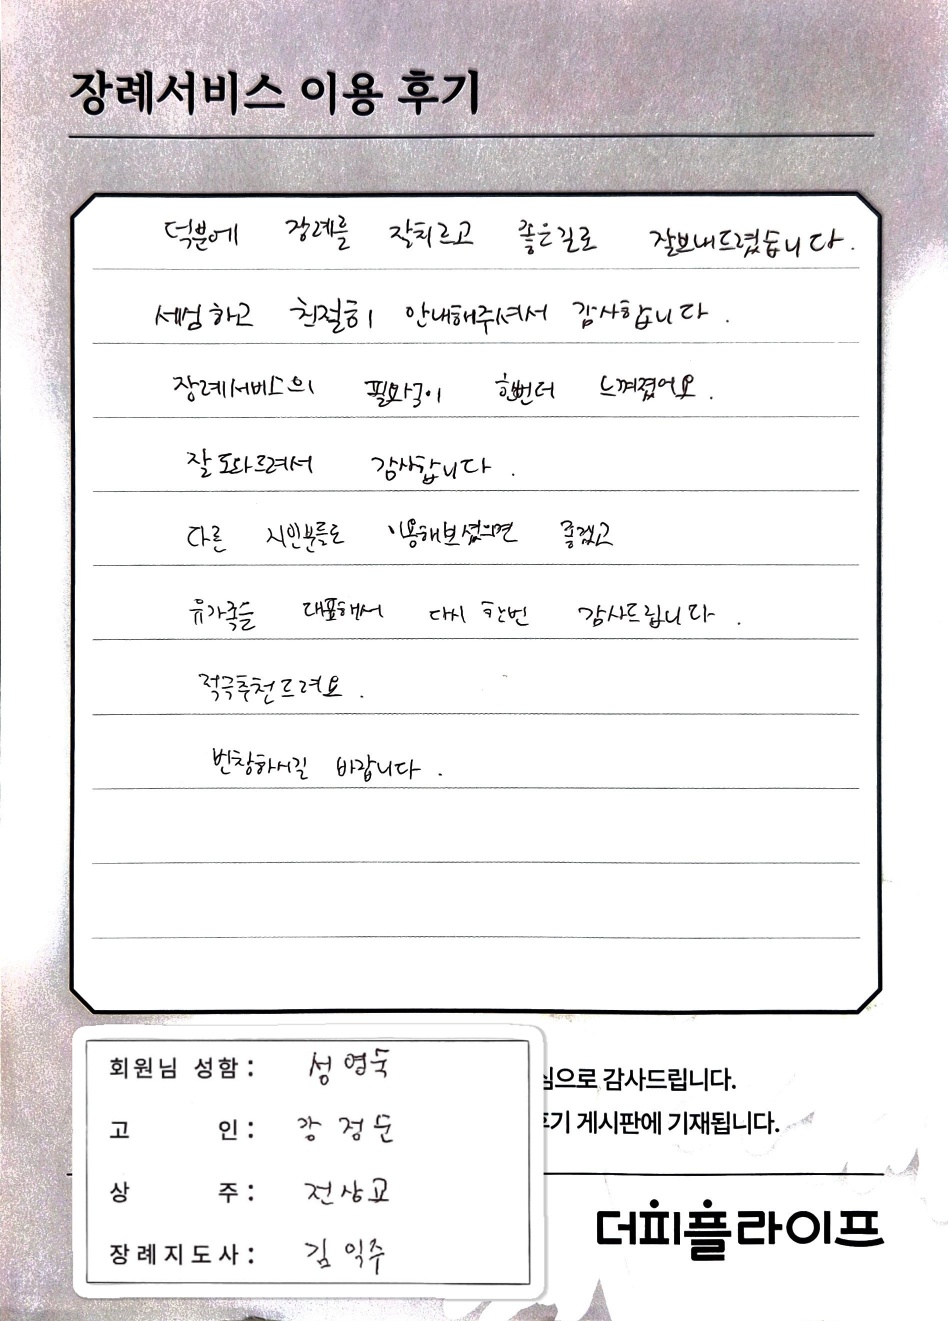 장례서비스 이용 후기
덕분에 장례를 잘치르고 좋은길로 잘보내드렸습니다.
세심하고 친절히 안내해주셔서 감사합니다.
장례서비스의 필요성이 한번더 느껴졌어요.
잘 도와드려서 감사합니다.
다른 지인분들도 이용해보셨으면 좋겠고
유가족을 대표해서 다시 한번 감사드립니다.
적극추천드려요.
번창하시길 바랍니다.
회원님 성함: 성영숙
심으로 감사드립니다.
고 인: 강정순
후기 게시판에 기재됩니다.
상 주: 전상교
장례지도사: 김익주
더피플라이프